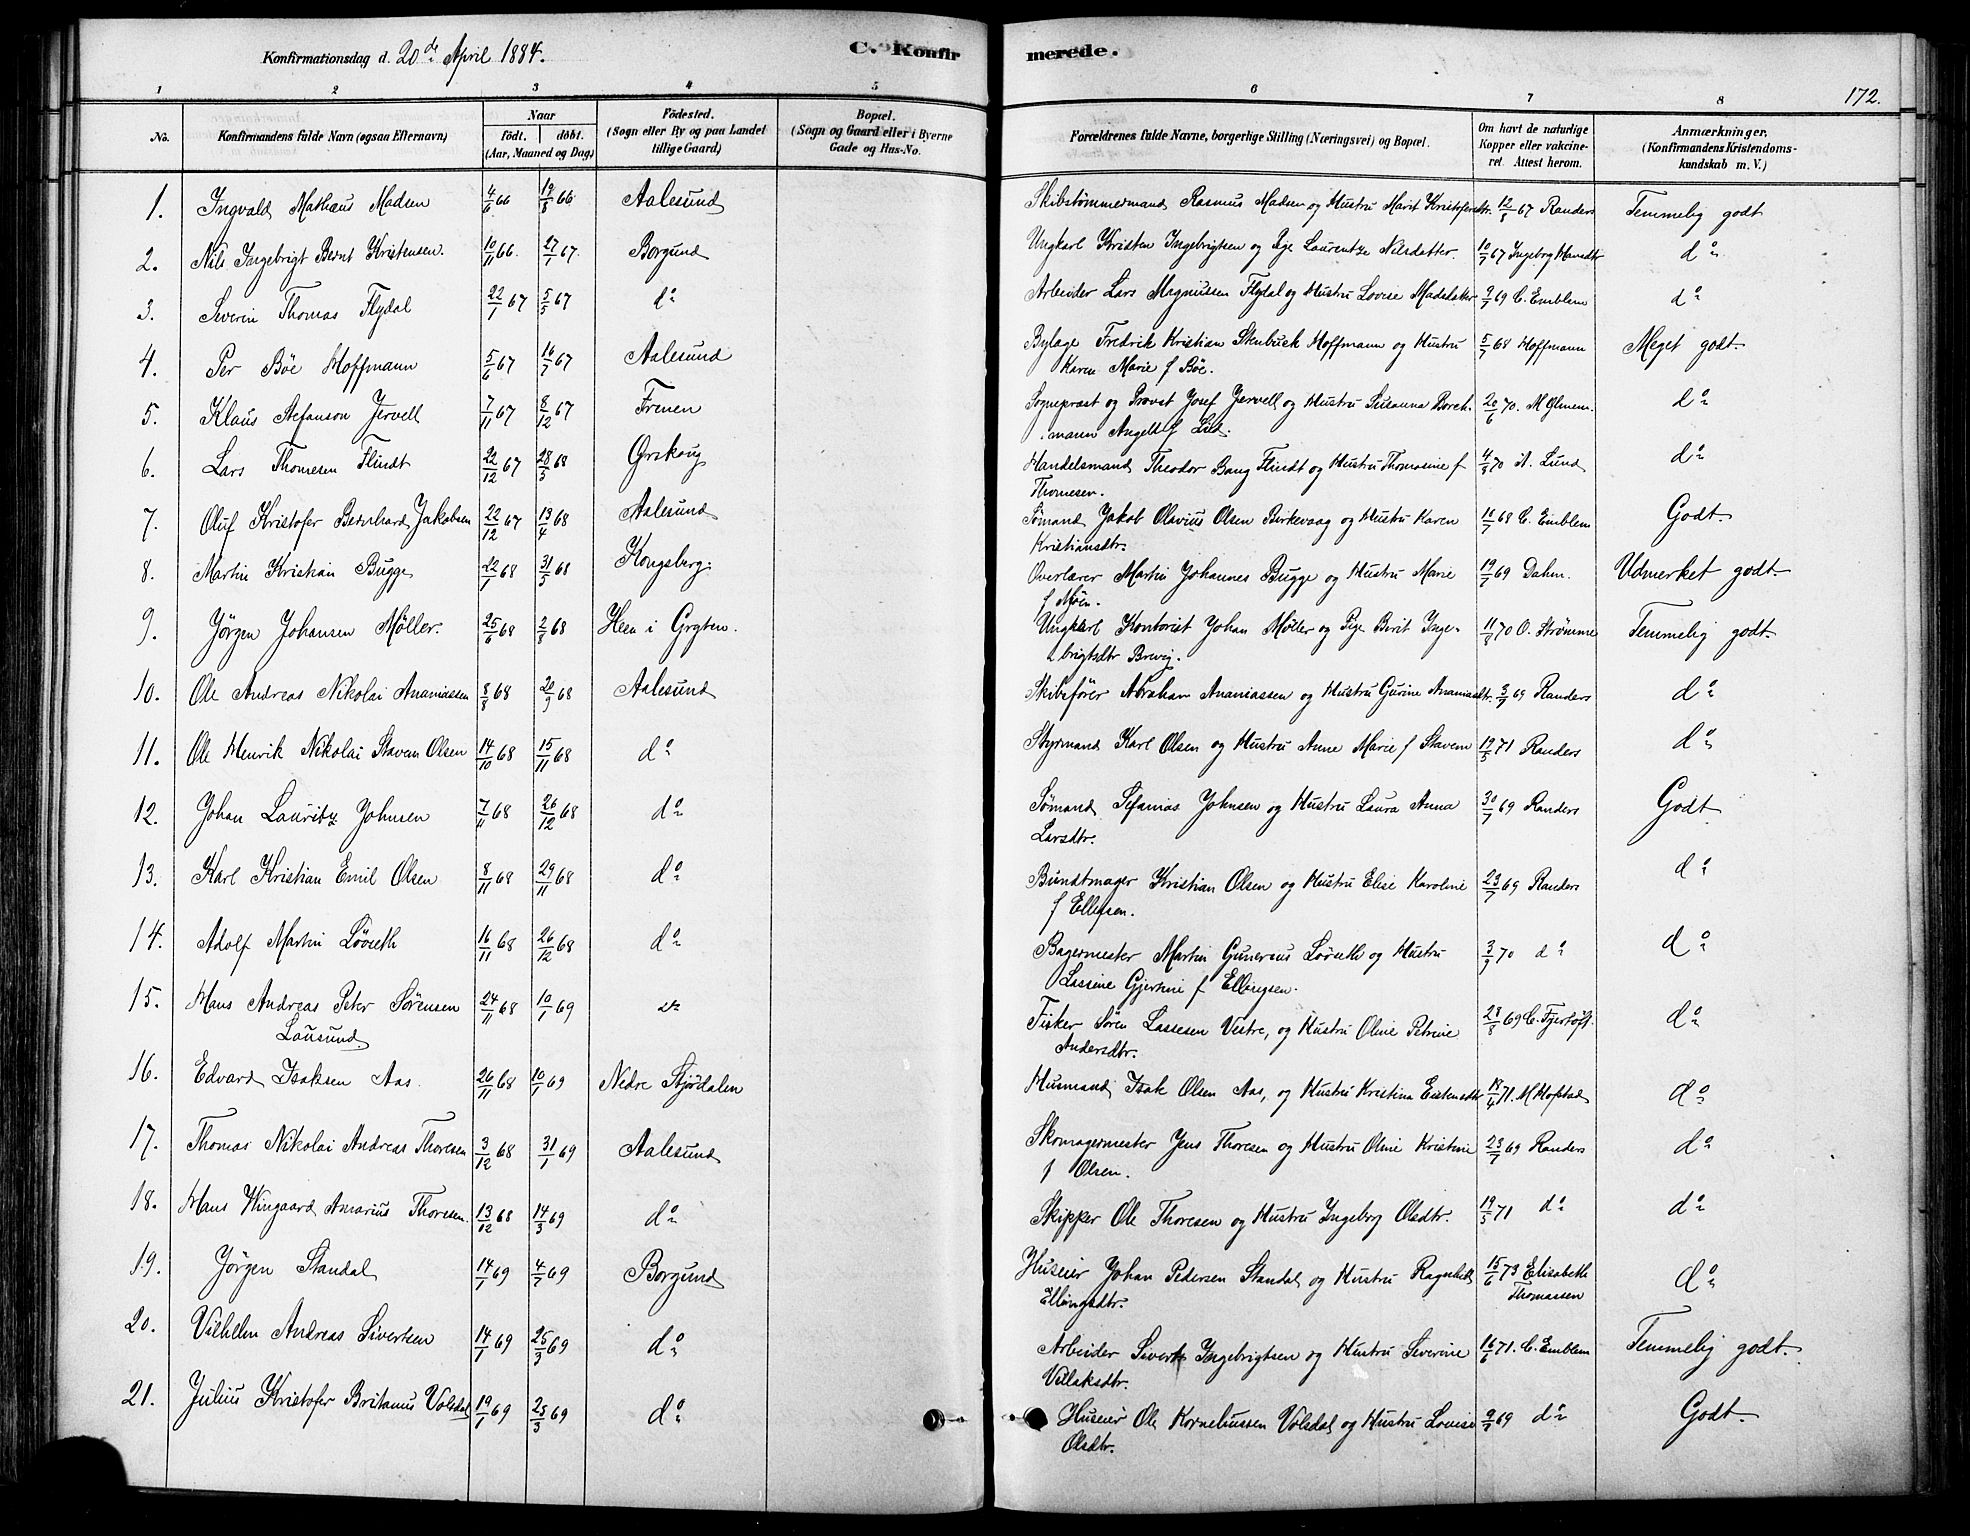 Konfirmationsdag d. 20de April 1884.
C. Konfirmerede.
172.
1 2 3 4 5 6 7 8
No. Konfirmandens fulde Navn (ogsaa Efternavn) Naar födt. döbt. (Aar, Maaned og Dag) Födested. (Sogn eller By og paa Landet tillige Gaard) Bopæl. (Sogn og Gaard eller i Byerne Gade og Hus-No. Forældrenes fulde Navne, borgerlige Stilling (Næringsvei) og Bopæl. Om havt de naturlige Kopper eller vakcineret. Attest herom. Anmærkninger. (Konfirmandens Kristendomskundskab m. V.)
1. Ingvald Mathæus Madsen 4/6 66 19/8 66 Aalesund Skibstømmermand Rasmus Madsen og Hustru Marit Kristofersdtr. 12/8 67 Randers Temmelig godt
2. Nils Ingebrigt Bernt Kristensen. 10/11 66. 27/1 67. Borgund Ungkarl Kristen Ingebrigtsen og Pige Laurentze Nilsdatter. 10/7 67 Ingeborg Hansdtr do
3. Severin Thomas Flydal 22/1 67 5/5 67 do Arbeider Lars Magnussen Flydal og Hustru Lovise Madsdatter 2/7 69 C. Emblem do
4. Per Böe Hoffmann 5/6 67 16/7 67 Aalesund Bylæge Fredrik Kristian Stenbuck Hoffmann og Hustru
Karen Marie f Böe. 5/7 68 Hoffmann Meget godt.
5. Klaus Stefanson Jervell 7/11 67 8/12 67 Frenen Sognepræst og Provst Josef Jervell og Hustru Susanna Borch-
mann Angell f Lund. 20/6 70. do
6. Lars Thomesen Flindt 22/12 67 28/5 68 Ørskoug Handelsmand Theodor Bang Flindt og Hustru Thomasine f
Thomesen. 4/8 70 A. Lund do
7. Oluf Kristofer Bernhard Jakobsen 22/12 67 13/4 68 Aalesund Sømand Jakob Olavius Olsen Birkevaag og Hustru Karen
Kristiansdtr. 10/7 68 C. Emblem Godt.
8. Martin Kristian Bugge 22/1 68 31/5 68 Kongsberg. Overlærer Martin Johannes Bugge og Hustru Marie
f Møen. 19/7 69 Dahm. Udmerket godt.
9. Jörgen Johansen Möller. 25/6 68 2/8 68 Heen i Grytten. Ungkarl Kontorist Johan Møller og Pige Berit Inge-
brigtsdtr Brevig. 11/8 70 O. Strömme Temmelig godt.
10. Ole Andreas Nikolai Ananiassen 8/8 68 20/9 68 Aalesund Skibsfører Abraham Ananiassen og Hustru Gurine Ananiasdtr. 3/9 69 Randers do
11. Ole Henrik Nikolai Stavem Olsen 14/10 68 15/11 68 do Styrmand Karl Olsen og Hustru Anne Marie f Stavem 19/5 71 Randers do
12. Johan Lauritz Johnsen 7/11 68 26/12 68 do Sømand Sefanias Johnsen og Hustru Laura Anna
Larsdtr. 30/7 69 Randers Godt
13. Karl Kristian Emil Olsen 8/11 68 29/11 68 do Bundtmager Kristian Olsen og Hustru Elise Karoline
f Ellefsen. 23/7 69 Randers do
14. Adolf Martin Lövseth 16/11 68 26/12 68 do Bagermester Martin Gunerius Lövseth og Hustru
Lassine Gjertine f Ellingsen. 3/9 70 do do
15. Hans Andreas Peter Sörensen
Lausund. 24/11 68 10/1 69 do Fisker Sören Lassesen Vestre, og Hustru Oline Petrine
Andersdtr. 28/8 69 C. Fjertoft. do
16. Edvard Isaksen Aas. 26/11 68 10/1 69 Nedre Stjördalen Husmand Isak Olsen Aas, og Hustru Kristina Eistensdtr 18/4 71. M Hofstad do
17. Thomas Nikolai Andreas Thoresen 3/12 68 31/1 69 Aalesund Skomagermester Jens Thoresen og Hustru Oline Kristine
f Olsen. 23/7 69 Randers do
18. Hans Wingaard Amarius Thoresen. 13/12 68 14/3 69 do Skipper Ole Thoresen og Hustru Ingeborg Olsdtr. 19/5 71 do do
19. Jörgen Standal 14/1 69 4/7 69 Borgund Huseier Johan Pedersen Standal og Hustru Ragnhild
Ellingsdtr. 15/6 73 Elisabeth
Thomassen do
20. Vilhelm Andreas Sivertsen 14/1 69 25/3 69 do Arbeider Sivert Ingebrigtsen og Hustru Severine
Velaksdtr. 16/6 71. C. Emblem Temmelig godt.
21. Julius Kristofer Britanus Volsdal 19/1 69 25/3 69 do Huseier Ole Korneliussen Volsdal og Hustru Lovise
Olsdtr. 9/7 69 do Godt.